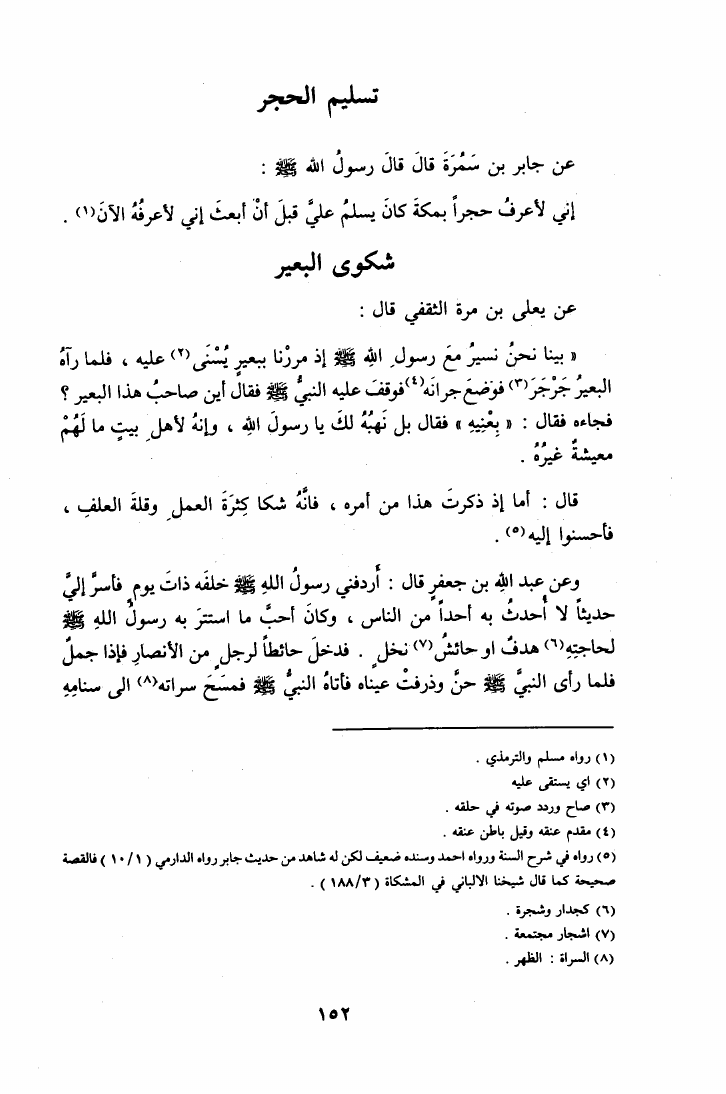 تسليم الحجر
عن جابر بن سَمُرَةَ قالَ قالَ رسولُ الله ﷺ :
إني لأعرفُ حجراً بمكةَ كانَ يسلمُ عليَّ قبلَ أنْ أبعثَ إني لأعرفُهُ الآنَ(١) .
شكوى البعير
عن يعلى بن مرة الثقفي قال :
« بينا نحنُ نسيرُ معَ رسولِ اللهِ ﷺ إذ مررْنا ببعيرٍ يُسْنَى(٢) عليه ، فلما رآهُ
البعيرُ جَرْجَرَ(٣) فوَضعَ جرانَه(٤) فوقفَ عليه النبيُّ ﷺ فقال أين صاحبُ هذا البعير ؟
فجاءه فقال : « بِعْنِيهِ » فقال بل نَهبُهُ لكَ يا رسولَ اللهِ ، وإنهُ لأهلِ بيتٍ ما لَهُمْ
معيشةٌ غيرُهُ .
قال : أما إذ ذكرتَ هذا من أمره ، فانَّهُ شكا كِثرَةَ العملِ وقلةَ العلفِ ،
فأحسنوا إليه(٥) .
وعن عبد اللهِ بن جعفرٍ قال : أردفني رسولُ اللهِ ﷺ خلفَه ذاتَ يومٍ فأسرَّ إليَّ
حديثاً لا أُحدثُ به أحداً من الناس ، وكانَ أحبَّ ما استترَ به رسولُ اللهِ ﷺ
لحاجتِهِ(٦) هدفٌ او حائشُ(٧) نخلٍ . فدخلَ حائطاً لرجلٍ من الأنصارِ فإذا جملٌ
فلما رأى النبيَّ ﷺ حنَّ وذرفتْ عيناه فأتاهُ النبيُّ ﷺ فمسَحَ سراته(٨) الى سنامِهِ
(١) رواه مسلم والترمذي .
(٢) اي يستقى عليه
(٣) صاح وردد صوته في حلقه .
(٤) مقدم عنقه وقيل باطن عنقه .
(٥) رواه في شرح السنة ورواه احمد وسنده ضعيف لكن له شاهد من حديث جابر رواه الدارمي ( ١٠/١ ) فالقصة
صحيحة كما قال شيخنا الالباني في المشكاة ( ١٨٨/٣ ) .
(٦) كجدار وشجرة .
(٧) اشجار مجتمعة .
(٨) السراة : الظهر .
١٥٢